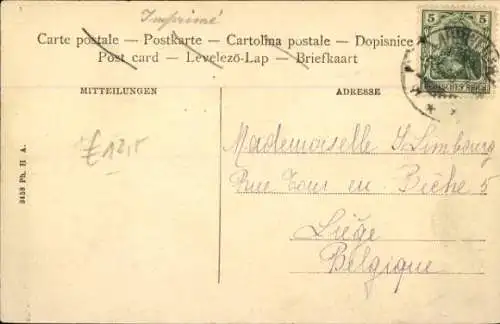 Imprimé
Carte postale — Postkarte — Cartolina postale — Dopisnice
Post card — Levelező-Lap — Briefkaart
MITTEILUNGEN
ADRESSE
5 5
DEUTSCHES REICH
£12,5
Mademoiselle J. Limbourg
Rue Tour en Bèche 5
Liège
Belgique
9459 Ph. H A.